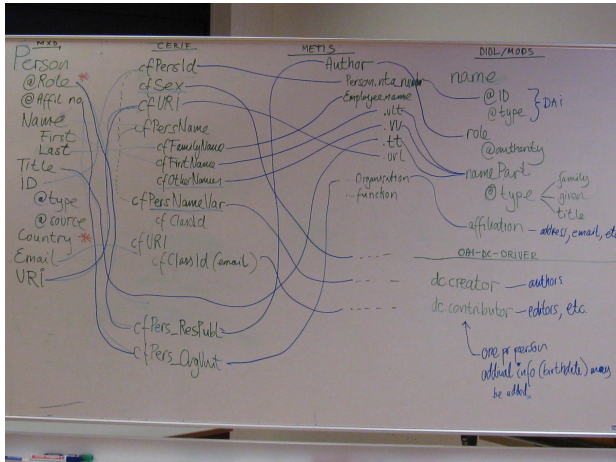 MXD
Person
@Role *
@Affil no.
Name
First
Last
Title
ID
@type
@source
Country *
Email
URI
CERIF
cfPersId
cfSex
cfURI
cfPersName
cfFamilyName
cfFirstName
cfOtherNames
cfPersNameVar
cfClassId
cfURI
cfClassId (email)
cfPers_ResPubl
cfPers_OrgUnit
METIS
Author
Employee.name
.vlt
.vv
.tt
.ovl
Organisation
function
DIDL/MODS
name
@ID
@type
} DAi
role
@authority
namePart
@type
family
given
title
affiliation — address, email, etc
OAI-DC-DRIVER
dc.creator — authors
dc.contributor — editors, etc.
one pr person
info (birthdate) may
be added.